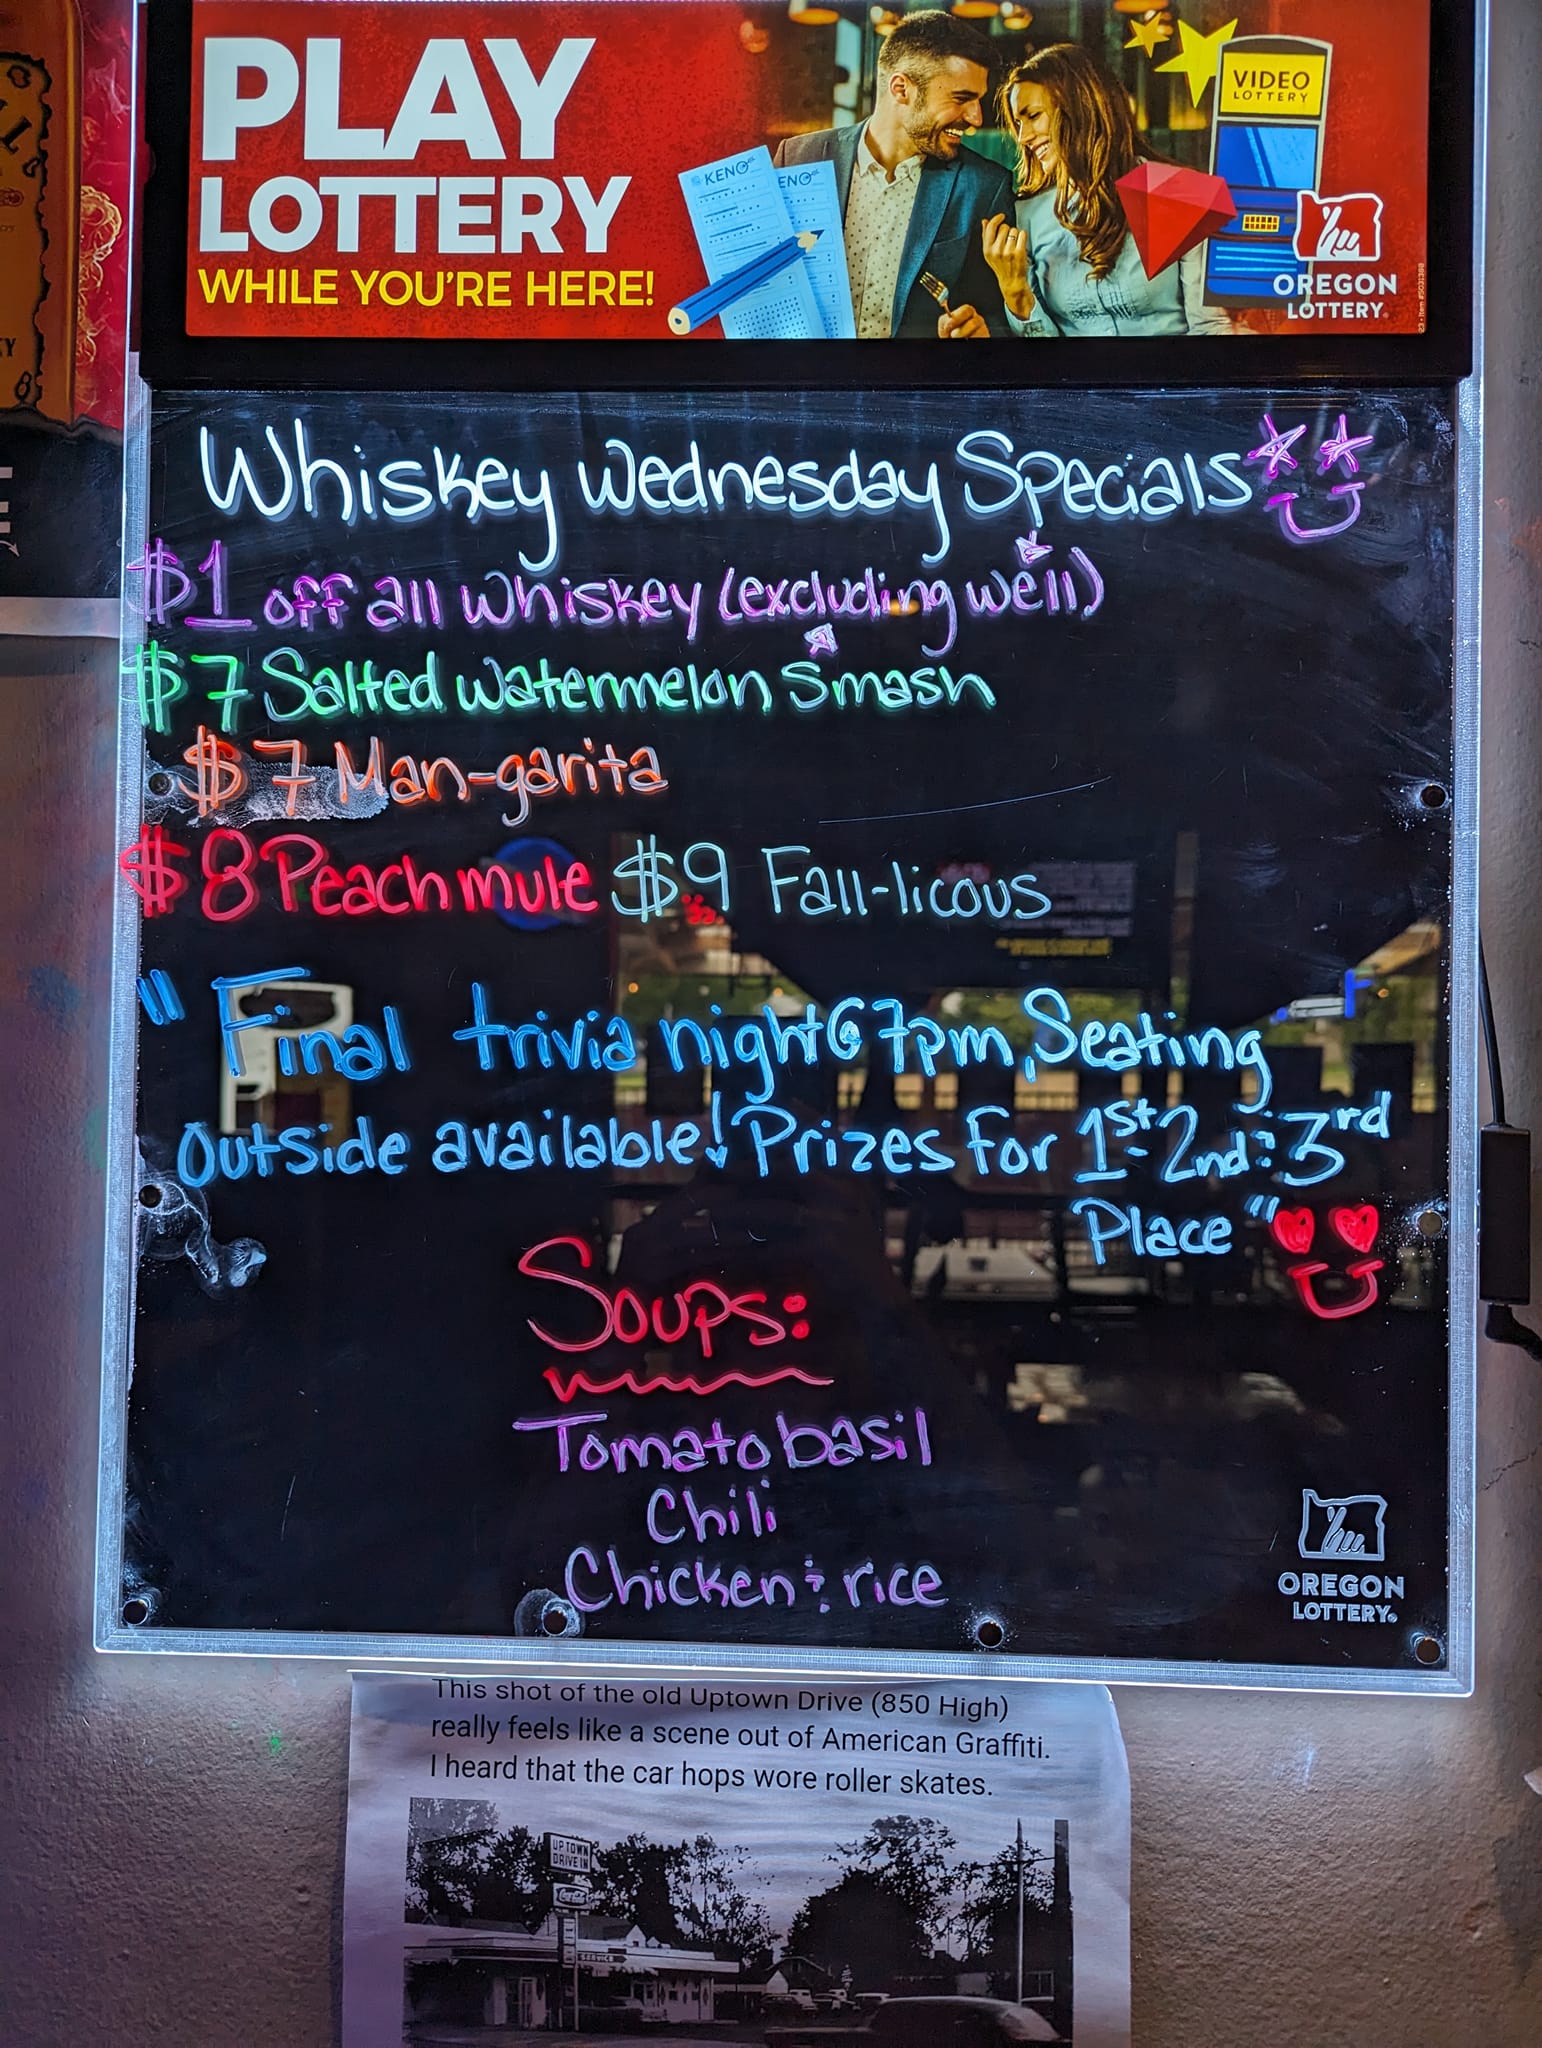 PLAY
LOTTERY
WHILE YOU'RE HERE!
KENO
ENO
VIDEO
LOTTERY
OREGON
LOTTERY
Whiskey Wednesday Specials
$1 off all whiskey (excluding well)
$7 Salted watermelon Smash
$7 Man-garita
$8 Peach mule $9 Fall-licous
"Final trivia night @ 7pm, Seating
outside available! Prizes for 1st 2nd & 3rd
Place"
Soups:
Tomato basil
Chili
Chicken & rice
OREGON
LOTTERY
This shot of the old Uptown Drive (850 High)
really feels like a scene out of American Graffiti.
I heard that the car hops wore roller skates.
UPTOWN
DRIVE IN
SERVICE